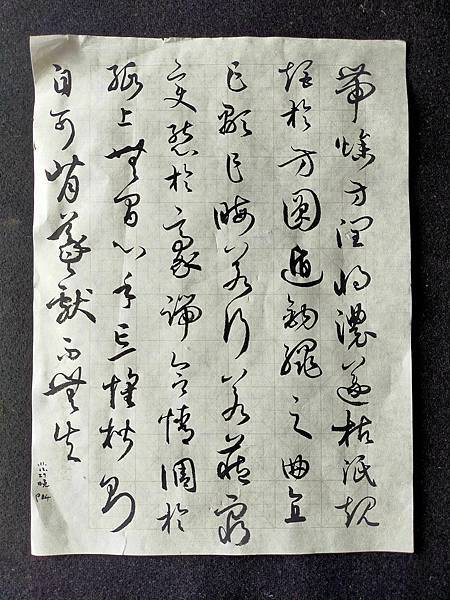 帶燥方潤將濃遂枯泯規
矩於方圓遁鉤繩之曲直
乍顯乍晦若行若藏窮
變態於豪端合情調於
紙上無間心手忘懷楷則
自可背羲獻而無失